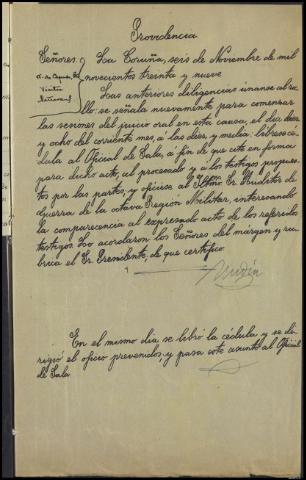 Providencia
Señores. La Coruña, seis de Noviembre de mil
novecientos treinta y nueve
Las anteriores diligencias únanse al ro-
llo: se señala nuevamente para comenzar
las sesiones del juicio oral en esta causa, el dia diez
y ocho del corriente mes, á las diez y media; líbrese cé-
dula al Oficial de Sala, á fin de que cite en forma
para dicho acto, al procesado y á los testigos propues-
tos por las partes, y ofíciese al Iltmo Sr. Auditor de
Guerra de la octava Región Militar, interesando
la comparecencia al expresado acto de los referidos
testigos. Lo acordaron los Señores del márgen y ru-
brica el Sr. Presidente, de que certifico
En el mismo dia se libró la cédula y se di-
rigió el oficio prevenidos, y pasa este asunto al Oficial
de Sala